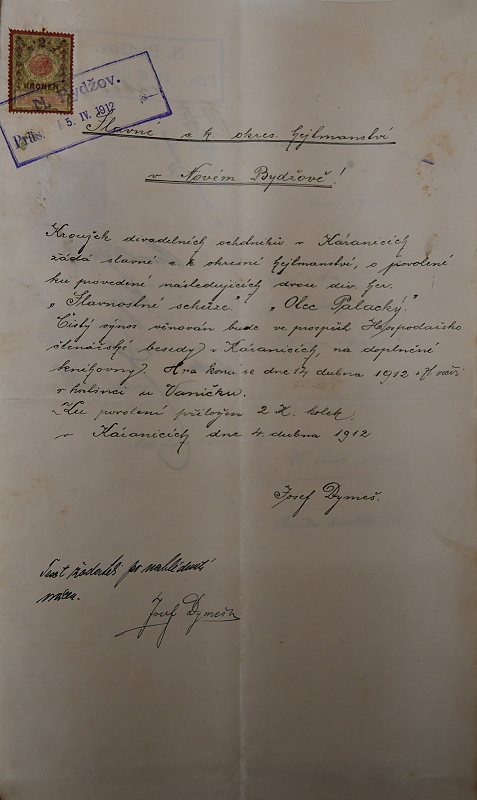 2
KRONEN
N. Bydžov.
Präs. 15. IV. 1912
Slavné c. k. okres. hejtmanství
v Novém Bydžově!
Kroužek divadelních ochotníků v Káranicích
žádá slavné c. k. okresné hejtmanství, o povolení
ku provedení následujících dvou div. her.
„Slavnostné schůze." „Otec Palacký."
Čistý výnos věnován bude ve prospěch Hospodářsko
čtenářské besedy v Káranicích, na doplnění
knihovny. Hra koná se dne 14 dubna 1912 večer
v hostinci u Vaníčků.
Ku povolení přiložen 2 K. kolek.
v Káranicích dne 4. dubna 1912
Josef Dymeš.
Text žádosti po nahlédnutí
vrácen.
Josef Dymeš